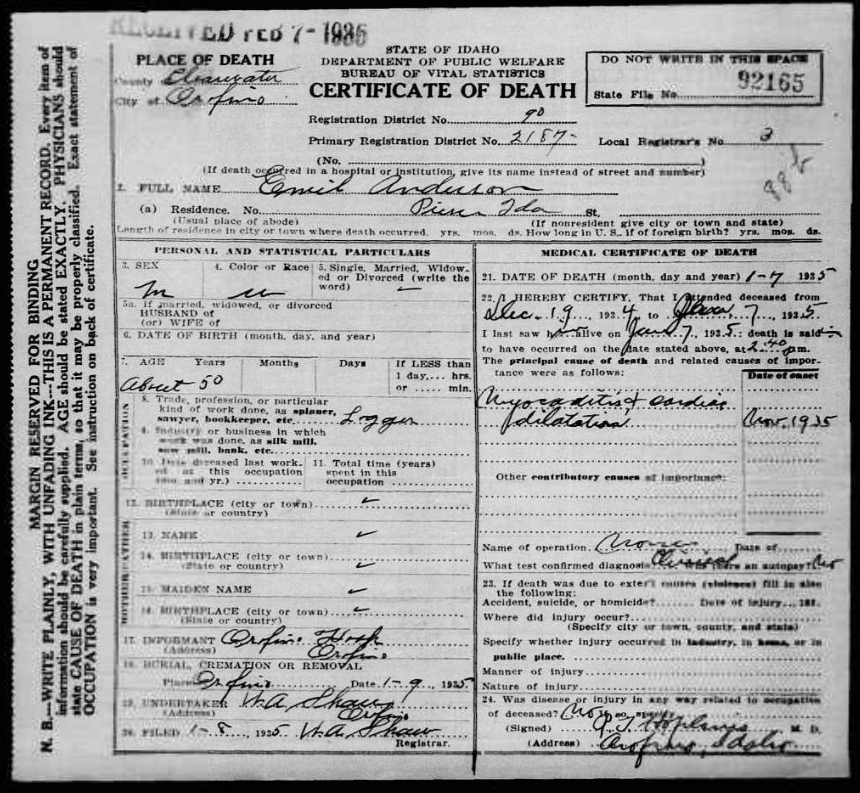 RECEIVED FEB 7 - 1935
STATE OF IDAHO
DEPARTMENT OF PUBLIC WELFARE
BUREAU OF VITAL STATISTICS
CERTIFICATE OF DEATH
PLACE OF DEATH
County Clearwater
City of Orofino
DO NOT WRITE IN THIS SPACE
State File No. 92165
Registration District No. 90
Primary Registration District No. 2187- Local Registrar's No. 3
(No. )
88b
(If death occurred in a hospital or institution, give its name instead of street and number)
1. FULL NAME Emil Anderson
(a) Residence. No. Pierce Ida St.
(Usual place of abode) (If nonresident give city or town and state)
Length of residence in city or town where death occurred. yrs. mos. ds. How long in U. S., if of foreign birth? yrs. mos. ds.
PERSONAL AND STATISTICAL PARTICULARS
3. SEX 4. Color or Race 5. Single, Married, Widow-
ed or Divorced (write the
word)
m w
5a. If married, widowed, or divorced
HUSBAND of
(or) WIFE of
6. DATE OF BIRTH (month, day, and year)
7. AGE Years Months Days If LESS than
1 day,... hrs.
or ..... min.
About 50
OCCUPATION
8. Trade, profession, or particular
kind of work done, as spinner,
sawyer, bookkeeper, etc. Logger
9. Industry or business in which
work was done, as silk mill,
saw mill, bank, etc.
10. Date deceased last work-
ed at this occupation
(mo. and yr.)
11. Total time (years)
spent in this
occupation
12. BIRTHPLACE (city or town)
(State or country)
FATHER
13. NAME
14. BIRTHPLACE (city or town)
(State or country)
MOTHER
15. MAIDEN NAME
16. BIRTHPLACE (city or town)
(State or country)
17. INFORMANT Orofino Hosp
(Address) Orofino
18. BURIAL, CREMATION OR REMOVAL
Place Orofino Date 1-9, 1935
19. UNDERTAKER W. A. Shaw
(Address)
20. FILED 1-8 1935 W. A. Shaw
Registrar.
MEDICAL CERTIFICATE OF DEATH
21. DATE OF DEATH (month, day and year) 1-7 1935
22. I HEREBY CERTIFY, That I attended deceased from
Dec. 19, 1934 to Jan, 7, 1935.
I last saw him alive on Jan 7, 1935: death is said
to have occurred on the date stated above, at 2:40 pm.
The principal cause of death and related causes of impor-
tance were as follows:
Date of onset
Myocarditis & cardiac
dilatation, Nov. 1935
Other contributory causes of importance:
Name of operation None Date of
What test confirmed diagnosis Clinical Was there an autopsy? No
23. If death was due to external causes (violence) fill in also
the following:
Accident, suicide, or homicide? Date of injury 193.
Where did injury occur?
(Specify city or town, county, and state)
Specify whether injury occurred in industry, in home, or in
public place.
Manner of injury
Nature of injury
24. Was disease or injury in any way related to occupation
of deceased? No If so, specify
(Signed) Hopkins M. D.
(Address) Orofino, Idaho
MARGIN RESERVED FOR BINDING
N. B.—WRITE PLAINLY, WITH UNFADING INK---THIS IS A PERMANENT RECORD. Every item of
information should be carefully supplied. AGE should be stated EXACTLY. PHYSICIANS should
state CAUSE OF DEATH in plain terms, so that it may be properly classified. Exact statement of
OCCUPATION is very important. See instruction on back of certificate.